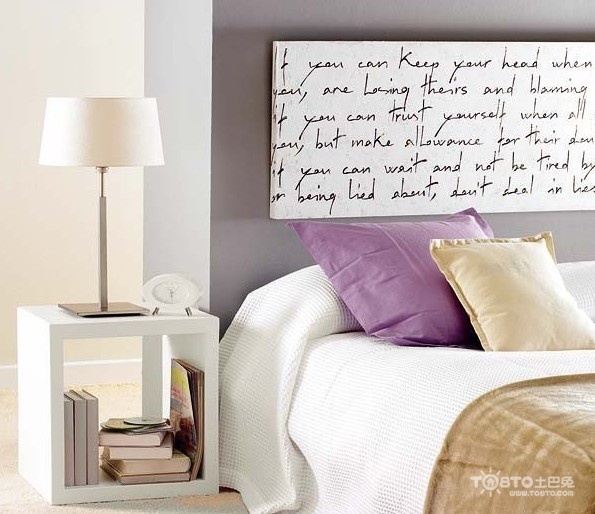 if you can keep your head when
you, are losing theirs and blaming
if you can trust yourself when all
you, but make allowance for their dou
if you can wait and not be tired by
or being lied about, don't deal in lies
TOBTO土巴兔
www.TO8TO.com